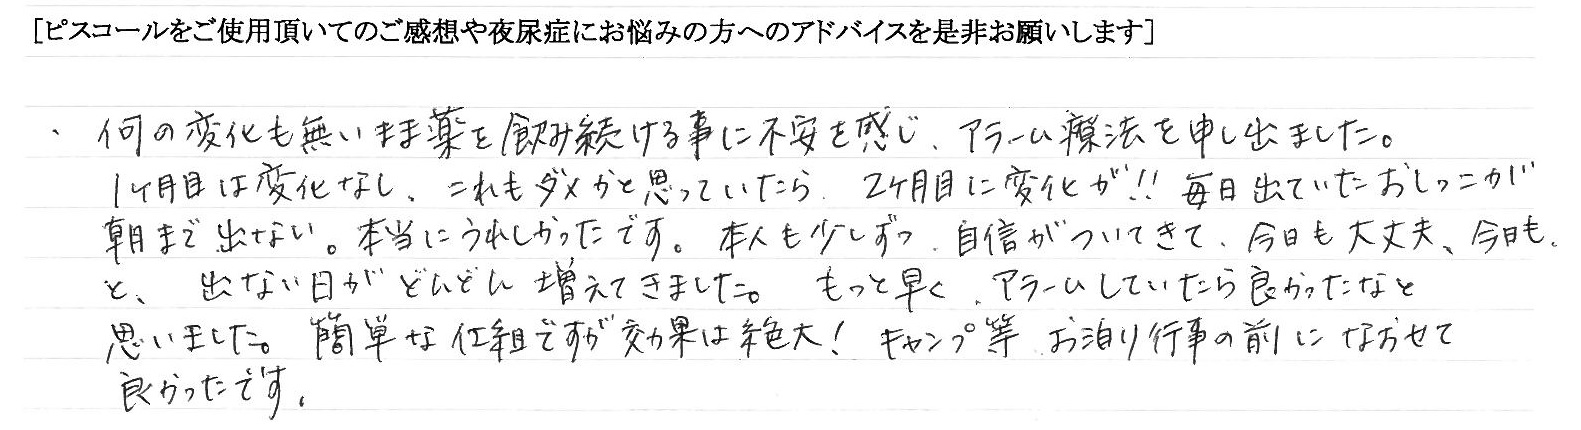 [ピスコールをご使用頂いてのご感想や夜尿症にお悩みの方へのアドバイスを是非お願いします]
・ 何の変化も無いまま薬を飲み続ける事に不安を感じ、アラーム療法を申し出ました。
1ヶ月目は変化なし、これもダメかと思っていたら、2ヶ月目に変化が!! 毎日出ていたおしっこが
朝まで出ない。本当にうれしかったです。本人も少しずつ、自信がついてきて、今日も大丈夫、今日も、
と、 出ない日がどんどん増えてきました。 もっと早く、アラームしていたら良かったなと
思いました。簡単な仕組ですが効果は絶大! キャンプ等 お泊り行事の前になおせて
良かったです。